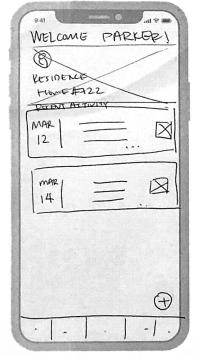 9:41
WELCOME PARKER!
RESIDENCE
HOME #722
RECENT ACTIVITY
MAR
12
...
MAR
14
...